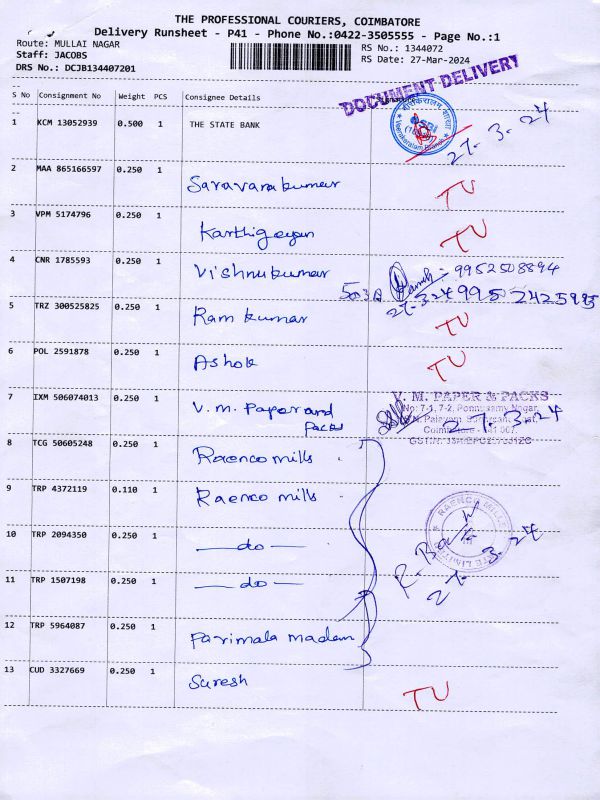 THE PROFESSIONAL COURIERS, COIMBATORE
Delivery Runsheet - P41 - Phone No.:0422-3505555 - Page No.:1
Route: MULLAI NAGAR
RS No.: 1344072
Staff: JACOBS
RS Date: 27-Mar-2024
DRS No.: DCJB134407201
DOCUMENT DELIVERY
S No Consignment No Weight PCS Consignee Details
1 KCM 13052939 0.500 1 THE STATE BANK
27.3.24
2 MAA 865166597 0.250 1 Saravanakumar TU
3 VPM 5174796 0.250 1 Karthigeyan TU
4 CNR 1785593 0.250 1 Vishnukumar
9952508894
503A
27.3.24 9952425995
5 TRZ 300525825 0.250 1 Ram kumar TU
6 POL 2591878 0.250 1 Ashok TU
7 IXM 506074013 0.250 1 V.M. Paper and Packs
V. M. PAPER & PACKS
No: 7-1, 7-2, Ponnusamy Nagar,
27.3.24
8 TCG 50605248 0.250 1 Raenco mills
9 TRP 4372119 0.110 1 Raenco mills
RAENCO MILLS
10 TRP 2094350 0.250 1 —do—
11 TRP 1507198 0.250 1 —do—
27.3.24
12 TRP 5964087 0.250 1 Parimala madam
13 CUD 3327669 0.250 1 Suresh TU